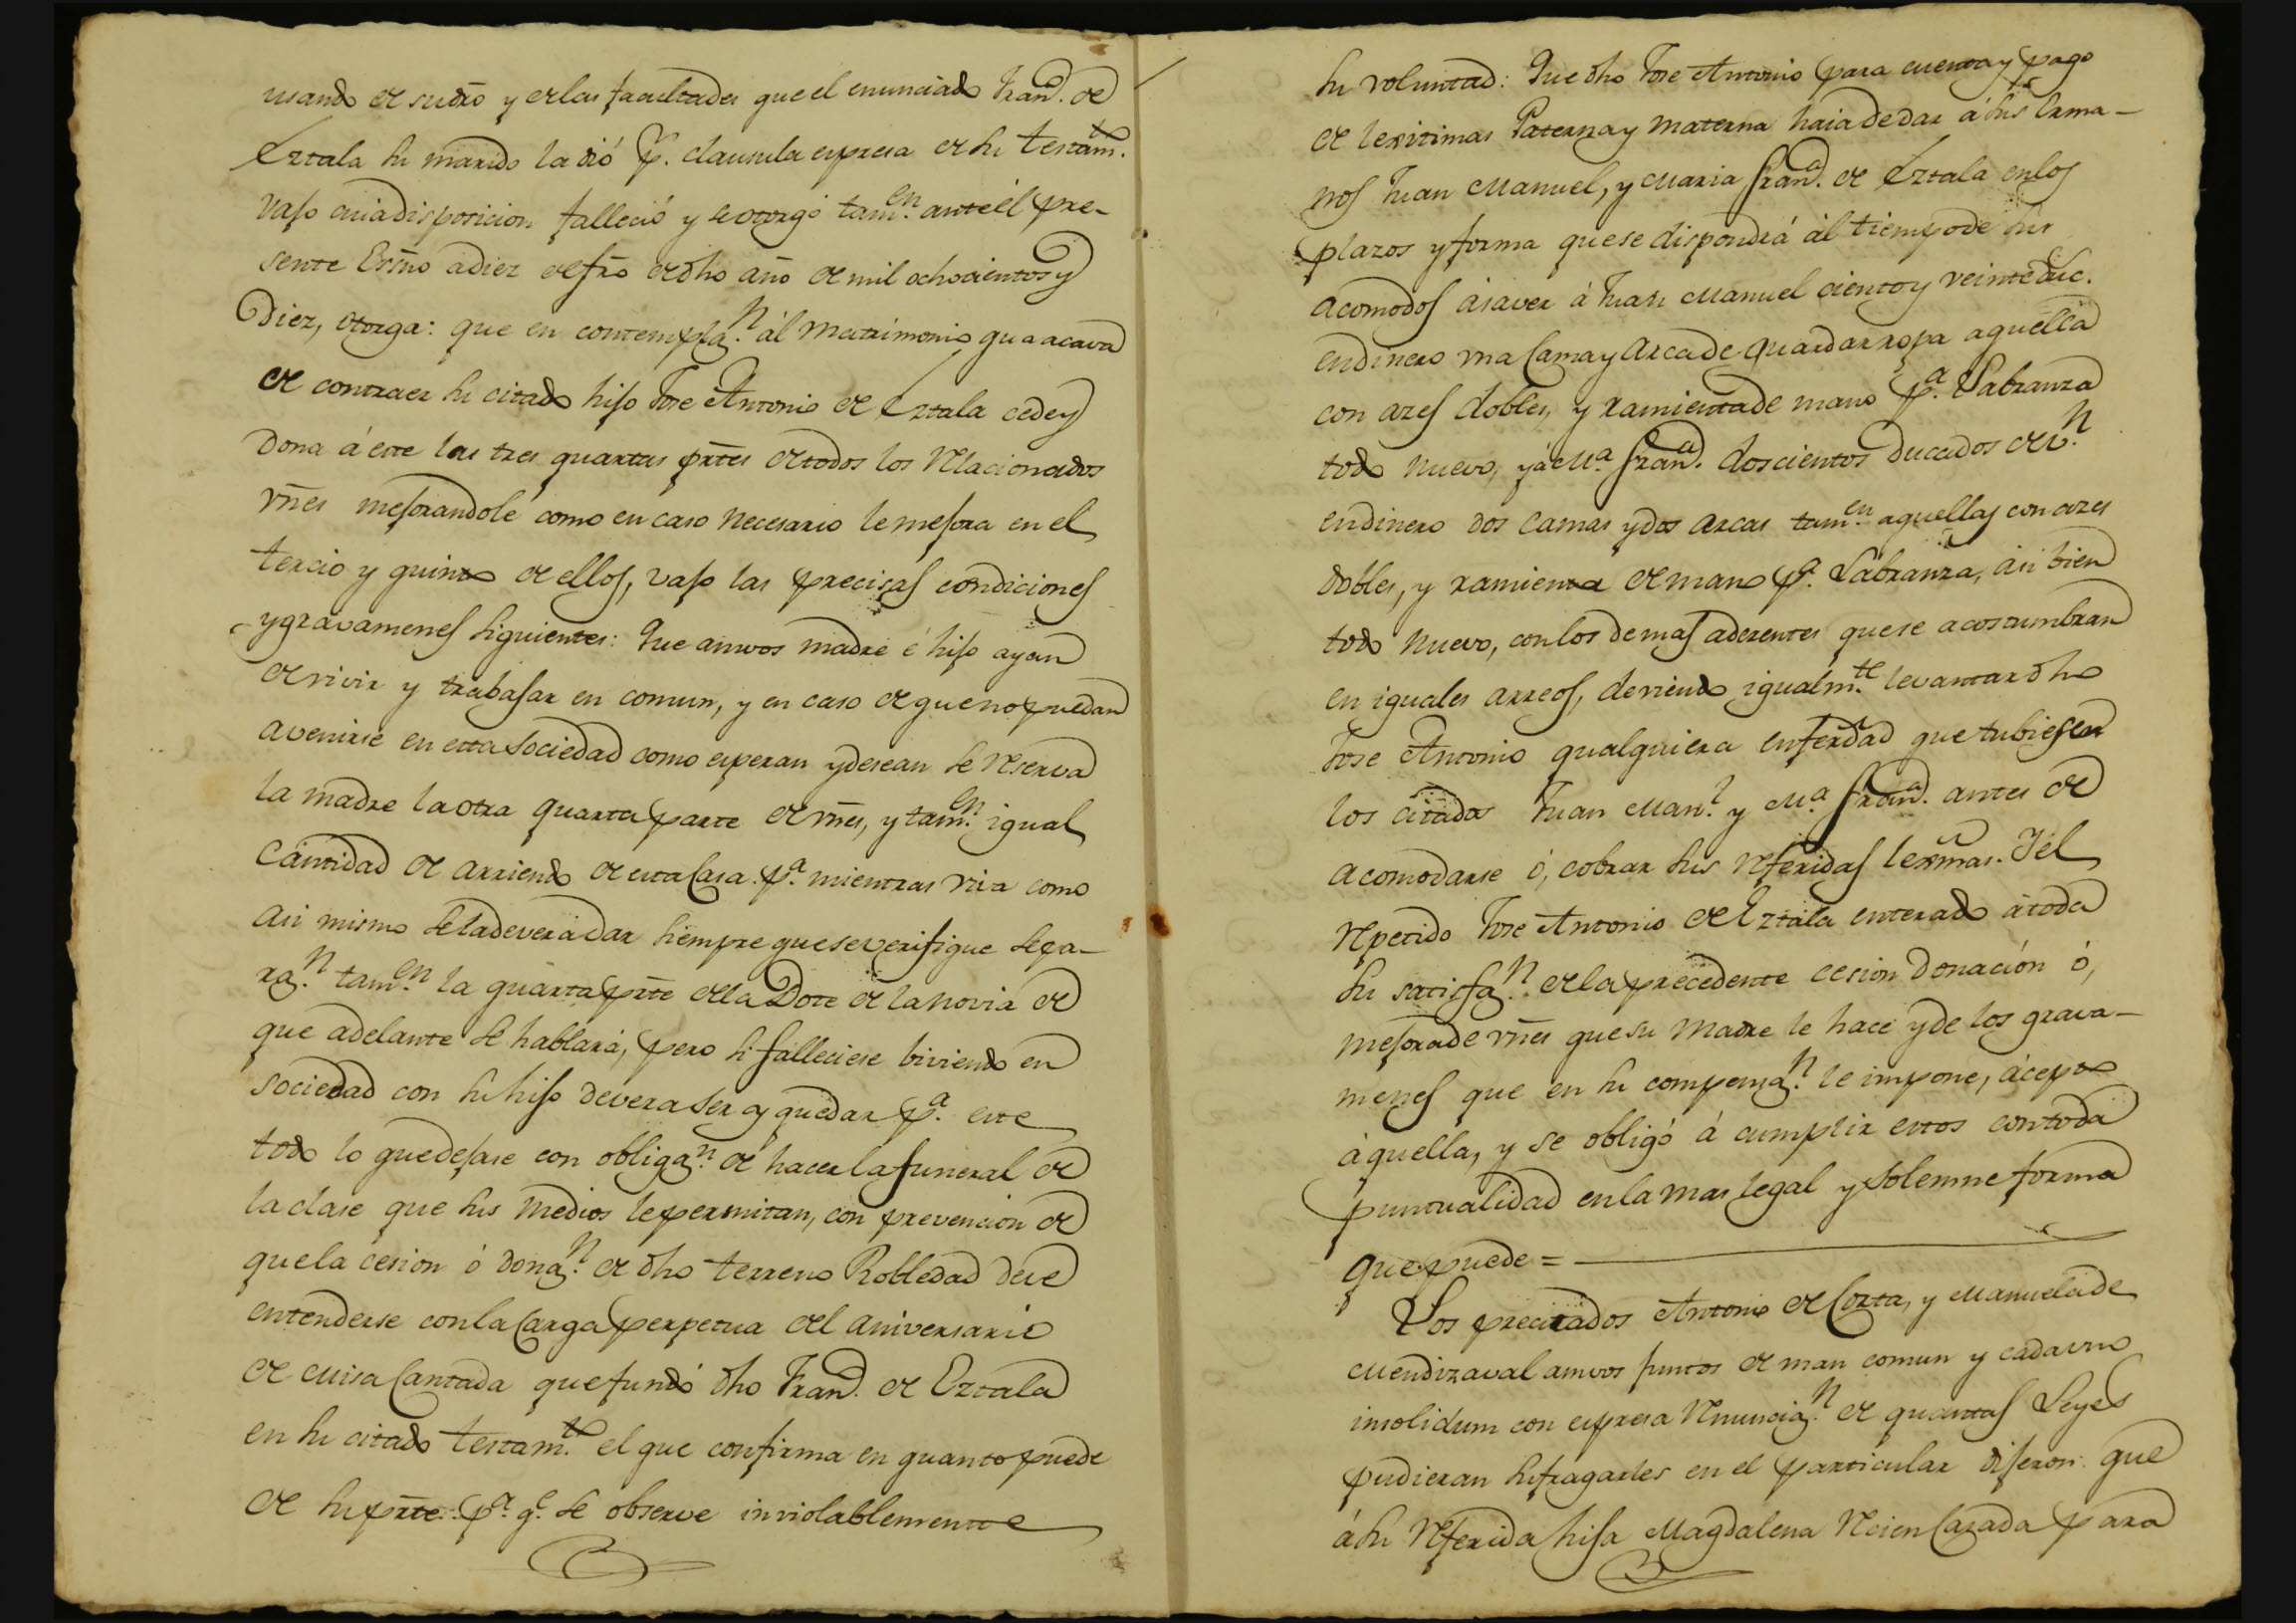 usando de su dro y de las facultades que el enunciado Fran.co de
Eztala su marido la dió p.r clausula expresa de su testam.to
vajo cuia disposicion falleció y se otorgó tam.en ante el pre-
sente Essno a diez de fro de dho año de mil ochocientos y
Diez, otorga: que en contempla.n al matrimonio qua acava
de contraer su citado hijo Jose Antonio de Eztala cede y
dona á este las tres quartas prtes de todos los relacionados
vnes mejorandole como en caso necesario le mejora en el
tercio y quinto de ellos, vajo las precisas condiciones
y gravamenes siguientes: Que amvos madre é hijo ayan
de vivir y trabajar en comun, y en caso de que no puedan
avenirse en esta sociedad como esperan y desean se reserva
la madre la otra quarta parte de vnes, y tam.en igual
Cantidad de arriendo de esta Casa p.a mientras viva como
asi mismo se la deverá dar siempre que se verifique sepa-
ra.n tam.en la quarta prte de la Dote de la novia de
que adelante se hablará, pero si falleciese biviendo en
sociedad con su hijo devera ser y quedar p.a este
todo lo que dejase con obliga.n de hacer la funeral de
la clase que sus medios le permitan, con prevencion de
que la cesion ó dona.n de dho terreno Robledad deve
entenderse con la Carga perpetua del aniversario
de Misa Cantada que fundó dho Fran.co de Eztala
en su citado testam.to el que confirma en quanto puede
de su prte p.a q.e se observe inviolablemente
su voluntad: Que dho Jose Antonio para cuenta y pago
de lexitimas Paterna y materna haia de dar á sus Erma-
nos Juan Manuel, y Maria Fran.ca de Eztala en los
plazos y forma que se dispondrá al tiempo de sus
acomodos á saver á Juan Manuel ciento y veinte duc.s
en dinero una Cama y Arca de guardar ropa aquella
con azes dobles, y ramienta de mano p.a Labranza
todo nuevo, y á M.a Fran.ca doscientos ducados de v.n
en dinero dos Camas y dos arcas tam.en aquellas con azes
dobles, y ramienta de mano p.a Labranza, asi bien
todo nuevo, con los demas aderentes que se acostumbran
en iguales arreos, deviendo igualm.te levantar dho
Jose Antonio qualquiera enferdad que tubiesen
los citados Juan Man.l y M.a Fran.ca antes de
acomodarse ó, cobrar sus referidas lexmas. Y él
repetido Jose Antonio de Eztala enterado á toda
su satisfa.n de la precedente cesion donación ó,
mejora de vnes que su Madre le hace y de los grava-
menes que en su compensa.n le impone, áceptó
áquella, y se obligó á cumplir estos con toda
puntualidad en la mas legal y solemne forma
que puede =
Los precitados Antonio de Corta, y Manuela de
Mendizaval amvos juntos de man comun y cada uno
insolidum con expresa renuncia.n de quantas Leyes
pudieran sufragarles en el particular dijeron que
á su referida hija Magdalena recien Casada para